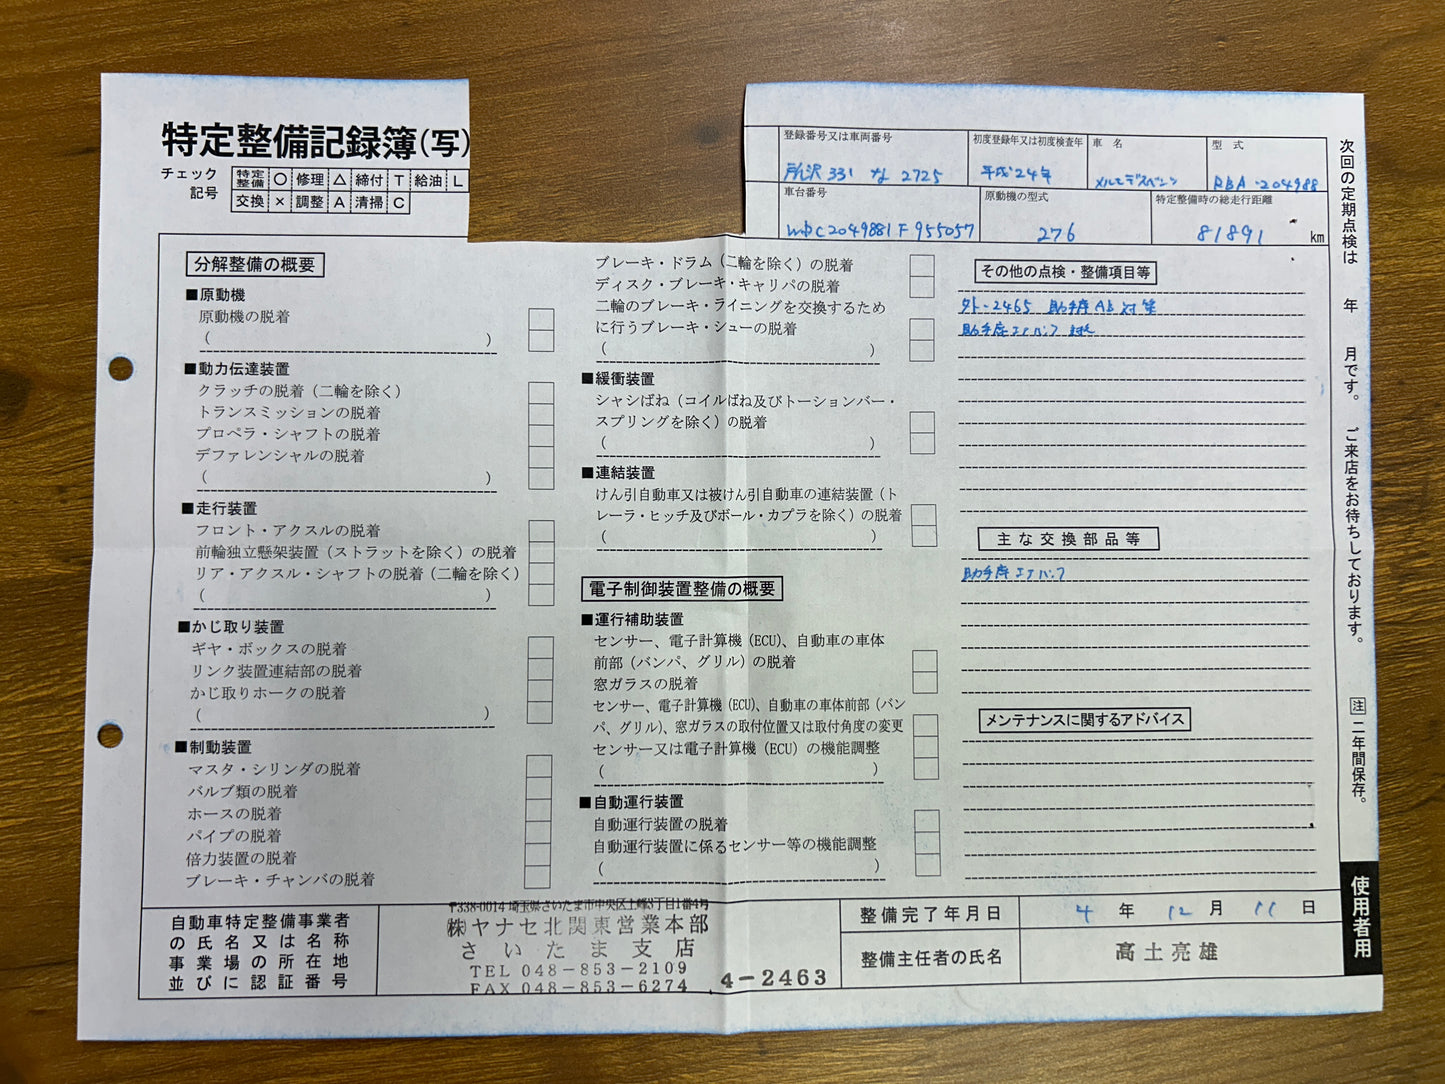 特定整備記録簿(写)
チェック記号
特定整備 ○ 修理 △ 締付 T 給油 L
交換 × 調整 A 清掃 C
登録番号又は車両番号
所沢 331 な 2725
初度登録年又は初度検査年
平成24年
車名
メルセデスベンツ
型式
RBA-204988
車台番号
WDC2049881F955057
原動機の型式
276
特定整備時の総走行距離
81891 km
分解整備の概要
■原動機
原動機の脱着
( )
■動力伝達装置
クラッチの脱着（二輪を除く）
トランスミッションの脱着
プロペラ・シャフトの脱着
デファレンシャルの脱着
( )
■走行装置
フロント・アクスルの脱着
前輪独立懸架装置（ストラットを除く）の脱着
リア・アクスル・シャフトの脱着（二輪を除く）
( )
■かじ取り装置
ギヤ・ボックスの脱着
リンク装置連結部の脱着
かじ取りホークの脱着
( )
■制動装置
マスタ・シリンダの脱着
バルブ類の脱着
ホースの脱着
パイプの脱着
倍力装置の脱着
ブレーキ・チャンバの脱着
ブレーキ・ドラム（二輪を除く）の脱着
ディスク・ブレーキ・キャリパの脱着
二輪のブレーキ・ライニングを交換するため
に行うブレーキ・シューの脱着
( )
■緩衝装置
シャシばね（コイルばね及びトーションバー・
スプリングを除く）の脱着
( )
■連結装置
けん引自動車又は被けん引自動車の連結装置（ト
レーラ・ヒッチ及びボール・カプラを除く）の脱着
( )
電子制御装置整備の概要
■運行補助装置
センサー、電子計算機（ECU）、自動車の車体
前部（バンパ、グリル）の脱着
窓ガラスの脱着
センサー、電子計算機（ECU）、自動車の車体前部（バン
パ、グリル）、窓ガラスの取付位置又は取付角度の変更
センサー又は電子計算機（ECU）の機能調整
( )
■自動運行装置
自動運行装置の脱着
自動運行装置に係るセンサー等の機能調整
( )
その他の点検・整備項目等
外-2465 助手席AB対策
助手席エアバッグ
主な交換部品等
助手席エアバッグ
メンテナンスに関するアドバイス
次回の定期点検は 年 月です。 ご来店をお待ちしております。
注 二年間保存。
使用者用
自動車特定整備事業者
の氏名又は名称
事業場の所在地
並びに認証番号
〒338-0014 埼玉県さいたま市中央区上峰3丁目1番4号
㈱ヤナセ北関東営業本部
さいたま支店
TEL 048-853-2109
FAX 048-853-6274
4-2463
整備完了年月日
4 年 12 月 11 日
整備主任者の氏名
髙土亮雄